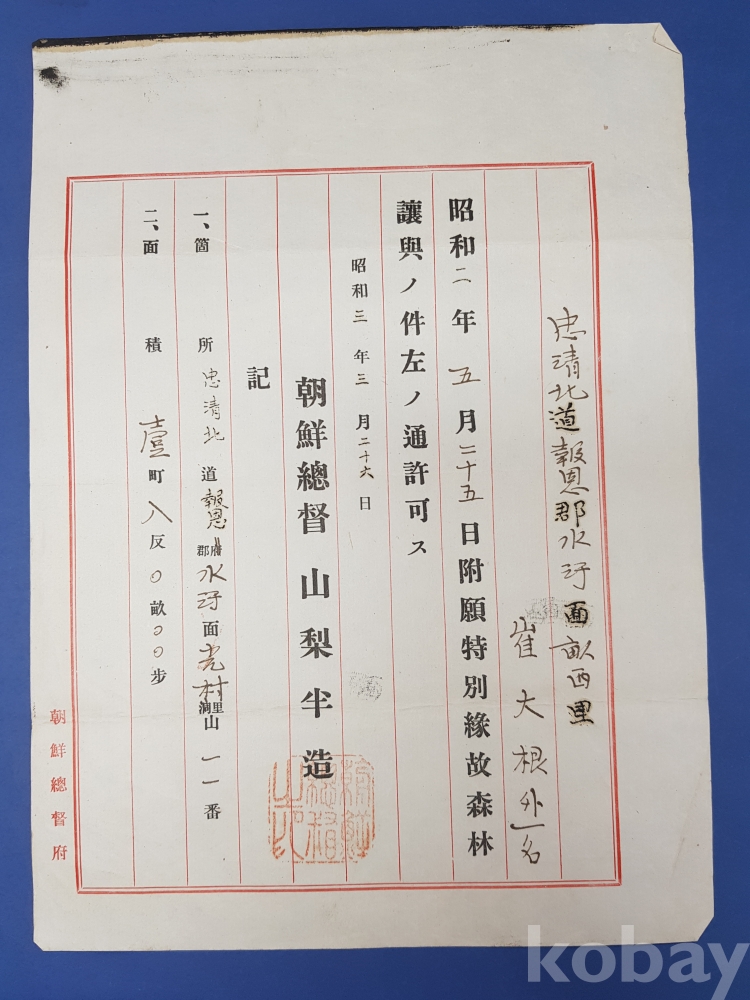 忠清北道報恩郡水汙面畝西里
崔大根外一名
昭和二年五月二十五日附願特別緣故森林
讓與ノ件左ノ通許可ス
昭和三年三月二十六日
朝鮮總督 山梨半造
記
一、箇所 忠清北道報恩郡府水汙面光村洞里山一一番
二、面積 壹町八反0畝00步
朝鮮總督府
朝鮮總督之印
kobay